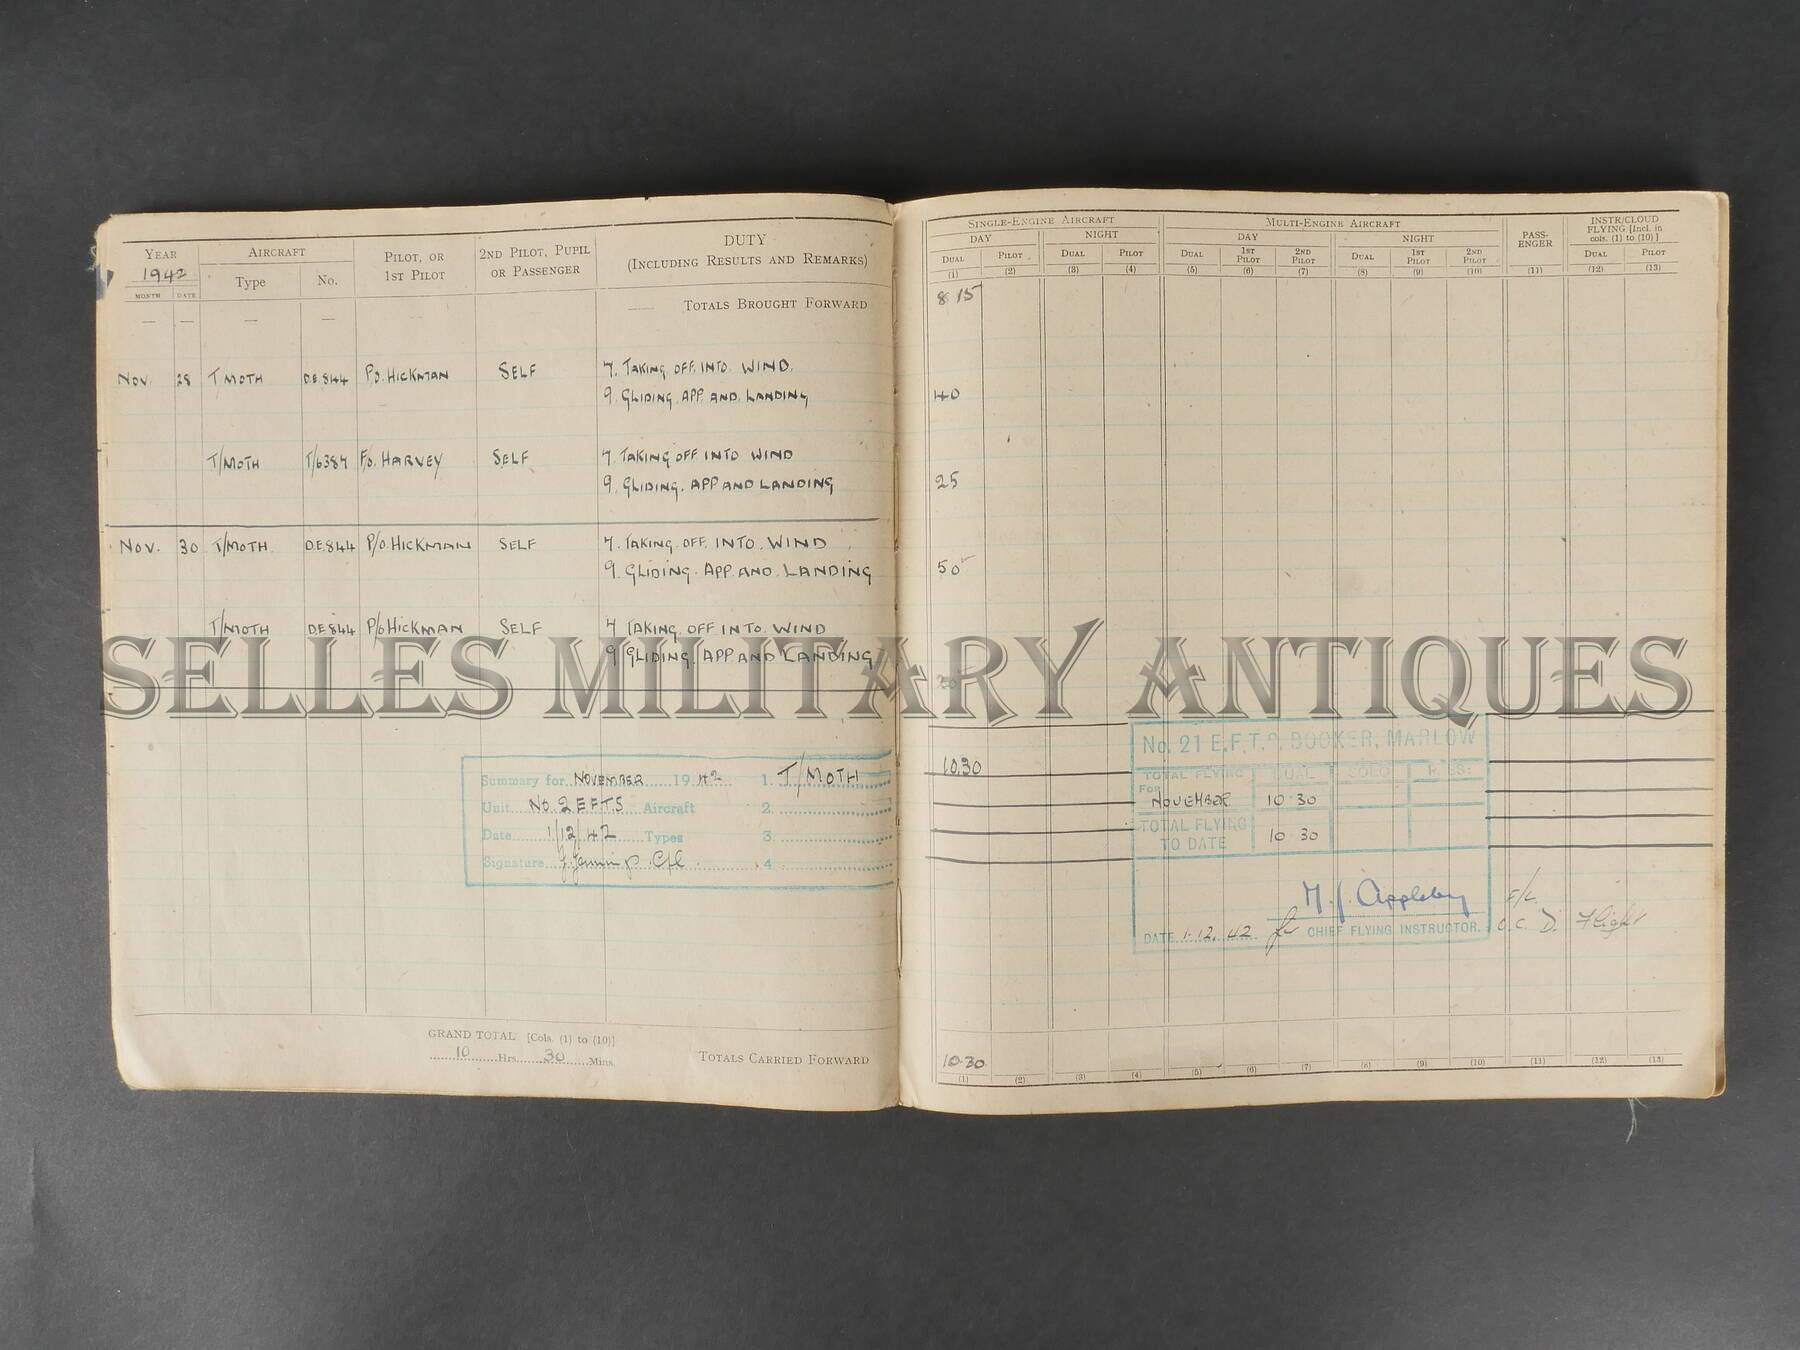 YEAR AIRCRAFT PILOT, OR 1ST PILOT 2ND PILOT, PUPIL OR PASSENGER DUTY (INCLUDING RESULTS AND REMARKS)
1942 Type No.
MONTH DATE
— — — — — TOTALS BROUGHT FORWARD
Nov. 28 T MOTH D.E.844 P.O. HICKMAN SELF 7. TAKING OFF INTO WIND.
9. GLIDING. APP. AND. LANDING
T/MOTH T/6387 F/O. HARVEY SELF 7. TAKING OFF INTO WIND
9. GLIDING. APP AND LANDING
Nov. 30 T/MOTH D.E.844 P/O. HICKMAN SELF 7. TAKING OFF. INTO. WIND
9. GLIDING. APP. AND. LANDING
T/MOTH D.E.844 P/O HICKMAN SELF 7 TAKING. OFF INTO. WIND
9 GLIDING. APP AND LANDING
SELLES MILITARY ANTIQUES
Summary for NOVEMBER 1942 1. T/MOTH
Unit No. 2 E.F.T.S Aircraft 2.
Date 1/12/42 Types 3.
Signature 4
GRAND TOTAL [Cols. (1) to (10)]
10 Hrs. 30 Mins.
TOTALS CARRIED FORWARD
SINGLE-ENGINE AIRCRAFT MULTI-ENGINE AIRCRAFT PASS-ENGER INSTR/CLOUD FLYING [Incl. in cols. (1) to (10)]
DAY NIGHT DAY NIGHT
DUAL PILOT DUAL PILOT DUAL 1ST PILOT 2ND PILOT DUAL 1ST PILOT 2ND PILOT DUAL PILOT
(1) (2) (3) (4) (5) (6) (7) (8) (9) (10) (11) (12) (13)
8 15
40
25
50
10.30
No. 21 E.F.T.S. BOOKER, MARLOW
TOTAL FLYING DUAL SOLO PASS:
FOR NOVEMBER 10 30
TOTAL FLYING TO DATE 10 30
M. J. Appleby F/L.
DATE 1.12.42 for CHIEF FLYING INSTRUCTOR. O.C. 'D' Flight
10.30
(1) (2) (3) (4) (5) (6) (7) (8) (9) (10) (11) (12) (13)